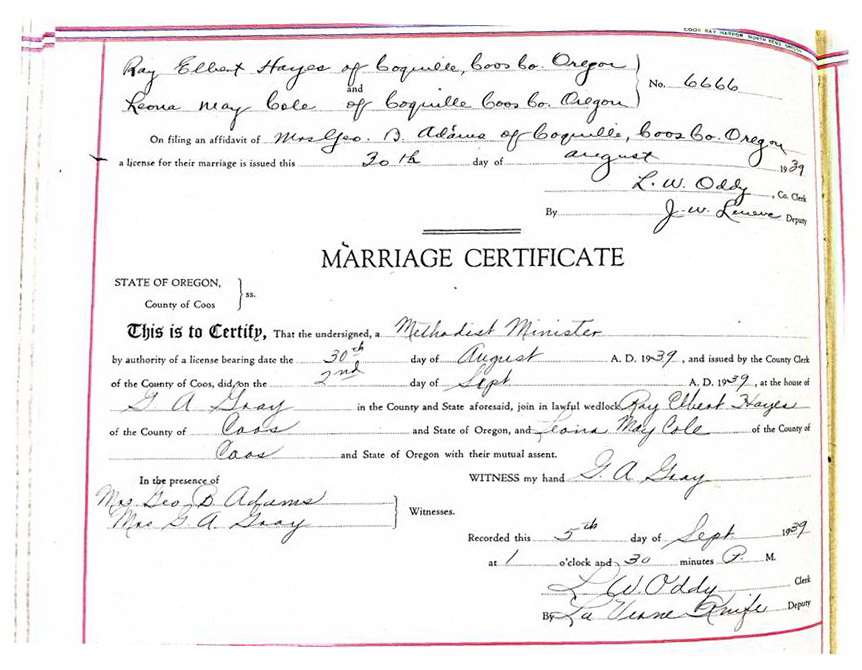 COOS BAY HARBOR NORTH BEND OREGON
Ray Elbert Hayes of Coquille, Coos Co. Oregon
and
No. 6666
Leona May Cole of Coquille Coos Co. Oregon
On filing an affidavit of Mrs Geo. B. Adams of Coquille, Coos Co. Oregon
a license for their marriage is issued this 30th day of august 1939
L. W. Oddy, Co. Clerk
By J. W. Leneve Deputy
MARRIAGE CERTIFICATE
STATE OF OREGON,
ss.
County of Coos
This is to Certify, That the undersigned, a Methodist Minister
by authority of a license bearing date the 30th day of August A. D. 1939, and issued by the County Clerk
of the County of Coos, did, on the 2nd day of Sept A. D. 1939, at the house of
G. A Gray in the County and State aforesaid, join in lawful wedlock Ray Elbert Hayes
of the County of Coos and State of Oregon, and Leona May Cole of the County of
Coos and State of Oregon with their mutual assent.
In the presence of
WITNESS my hand G. A Gray
Mrs Geo B Adams
Witnesses.
Mrs G. A. Gray
Recorded this 5th day of Sept 1939
at 1 o'clock and 30 minutes P. M.
L W. Oddy Clerk
By La Verne Knife Deputy